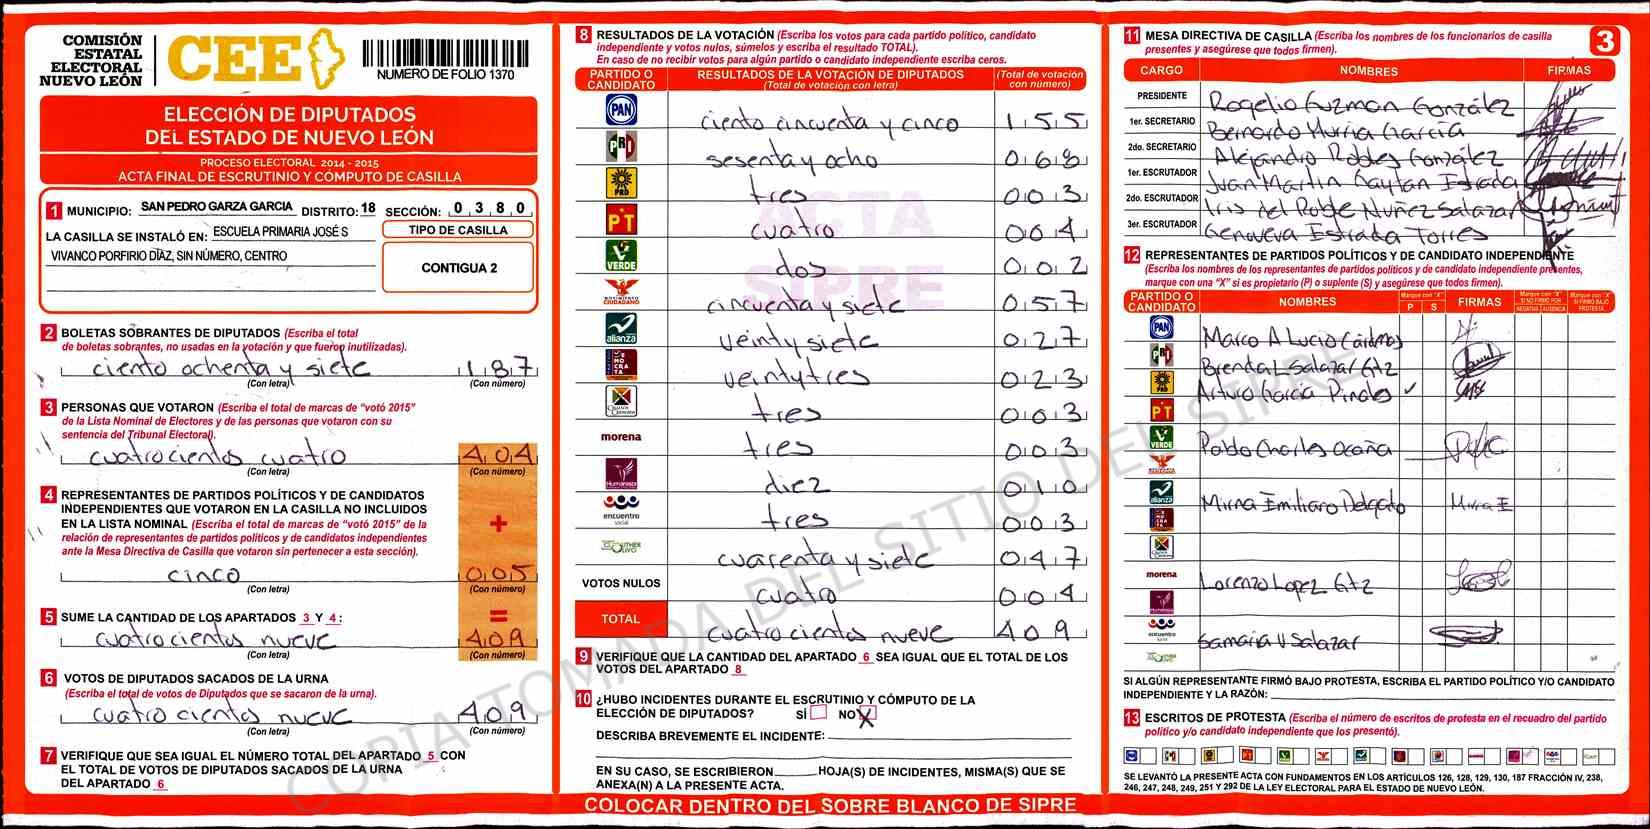 COMISIÓN
ESTATAL
ELECTORAL
NUEVO LEÓN
CEE
NUMERO DE FOLIO 1370
ELECCIÓN DE DIPUTADOS
DEL ESTADO DE NUEVO LEÓN
PROCESO ELECTORAL 2014 - 2015
ACTA FINAL DE ESCRUTINIO Y CÓMPUTO DE CASILLA
1 MUNICIPIO: SAN PEDRO GARZA GARCIA DISTRITO: 18 SECCIÓN: 0 3 8 0
LA CASILLA SE INSTALÓ EN: ESCUELA PRIMARIA JOSÉ S
VIVANCO PORFIRIO DÍAZ, SIN NÚMERO, CENTRO
TIPO DE CASILLA
CONTIGUA 2
2 BOLETAS SOBRANTES DE DIPUTADOS (Escriba el total
de boletas sobrantes, no usadas en la votación y que fueron inutilizadas).
ciento ochenta y siete 187
(Con letra) (Con número)
3 PERSONAS QUE VOTARON (Escriba el total de marcas de “votó 2015”
de la Lista Nominal de Electores y de las personas que votaron con su
sentencia del Tribunal Electoral).
cuatrocientos cuatro 404
(Con letra) (Con número)
4 REPRESENTANTES DE PARTIDOS POLÍTICOS Y DE CANDIDATOS
INDEPENDIENTES QUE VOTARON EN LA CASILLA NO INCLUIDOS
EN LA LISTA NOMINAL (Escriba el total de marcas de “votó 2015” de la
relación de representantes de partidos políticos y de candidatos independientes
ante la Mesa Directiva de Casilla que votaron sin pertenecer a esta sección).
+
cinco 005
(Con letra) (Con número)
=
5 SUME LA CANTIDAD DE LOS APARTADOS 3 Y 4:
cuatrocientos nueve 409
(Con letra) (Con número)
6 VOTOS DE DIPUTADOS SACADOS DE LA URNA
(Escriba el total de votos de Diputados que se sacaron de la urna).
cuatrocientos nueve 409
(Con letra) (Con número)
7 VERIFIQUE QUE SEA IGUAL EL NÚMERO TOTAL DEL APARTADO 5 CON
EL TOTAL DE VOTOS DE DIPUTADOS SACADOS DE LA URNA
DEL APARTADO 6
8 RESULTADOS DE LA VOTACIÓN (Escriba los votos para cada partido político, candidato
independiente y votos nulos, súmelos y escriba el resultado TOTAL).
En caso de no recibir votos para algún partido o candidato independiente escriba ceros.
PARTIDO O CANDIDATO RESULTADOS DE LA VOTACIÓN DE DIPUTADOS (Total de votación con letra) (Total de votación con número)
PAN ciento cincuenta y cinco 155
PRI sesenta y ocho 068
PRD tres 003
PT cuatro 004
VERDE dos 002
MOVIMIENTO CIUDADANO cincuenta y siete 057
alianza veinty siete 027
DEMOCRATA veintytres 023
tres 003
morena tres 003
Humanista diez 010
encuentro social tres 003
cuarenta y siete 047
VOTOS NULOS cuatro 004
TOTAL cuatrocientos nueve 409
ACTA
SIPRE
9 VERIFIQUE QUE LA CANTIDAD DEL APARTADO 6 SEA IGUAL QUE EL TOTAL DE LOS
VOTOS DEL APARTADO 8
10 ¿HUBO INCIDENTES DURANTE EL ESCRUTINIO Y CÓMPUTO DE LA
ELECCIÓN DE DIPUTADOS? SÍ NO X
DESCRIBA BREVEMENTE EL INCIDENTE:
EN SU CASO, SE ESCRIBIERON HOJA(S) DE INCIDENTES, MISMA(S) QUE SE
ANEXA(N) A LA PRESENTE ACTA.
COLOCAR DENTRO DEL SOBRE BLANCO DE SIPRE
11 MESA DIRECTIVA DE CASILLA (Escriba los nombres de los funcionarios de casilla
presentes y asegúrese que todos firmen).
3
CARGO NOMBRES FIRMAS
PRESIDENTE Rogelio Guzman González
1er. SECRETARIO Bernardo Murria García
2do. SECRETARIO Alejandro Robles González
1er. ESCRUTADOR Juan Martin Gaytan Estrada
2do. ESCRUTADOR Iris del Roble Nuñez Salazar
3er. ESCRUTADOR Genoveva Estrada Torres
12 REPRESENTANTES DE PARTIDOS POLÍTICOS Y DE CANDIDATO INDEPENDIENTE
(Escriba los nombres de los representantes de partidos políticos y de candidato independiente presentes,
marque con una “X” si es propietario (P) o suplente (S) y asegúrese que todos firmen).
PARTIDO O CANDIDATO NOMBRES Marque con "X" P S FIRMAS Marque con "X" SI NO FIRMÓ POR NEGATIVA AUSENCIA Marque con "X" SI FIRMÓ BAJO PROTESTA
PAN Marco A Lucio Cárdenas
PRI Brenda L Salazar Gtz
PRD Arturo García Pinales ✓
PT
VERDE Pablo Charles Ocaña
alianza Mirna Emiliano Delgado Mirna E
morena Lorenzo Lopez Gtz
Humanista
encuentro social Samaria V Salazar
SI ALGÚN REPRESENTANTE FIRMÓ BAJO PROTESTA, ESCRIBA EL PARTIDO POLÍTICO Y/O CANDIDATO
INDEPENDIENTE Y LA RAZÓN:
13 ESCRITOS DE PROTESTA (Escriba el número de escritos de protesta en el recuadro del partido
político y/o candidato independiente que los presentó).
SE LEVANTÓ LA PRESENTE ACTA CON FUNDAMENTOS EN LOS ARTÍCULOS 126, 128, 129, 130, 187 FRACCIÓN IV, 238,
246, 247, 248, 249, 251 Y 292 DE LA LEY ELECTORAL PARA EL ESTADO DE NUEVO LEÓN.
COPIA TOMADA DEL SITIO DEL SIPRE